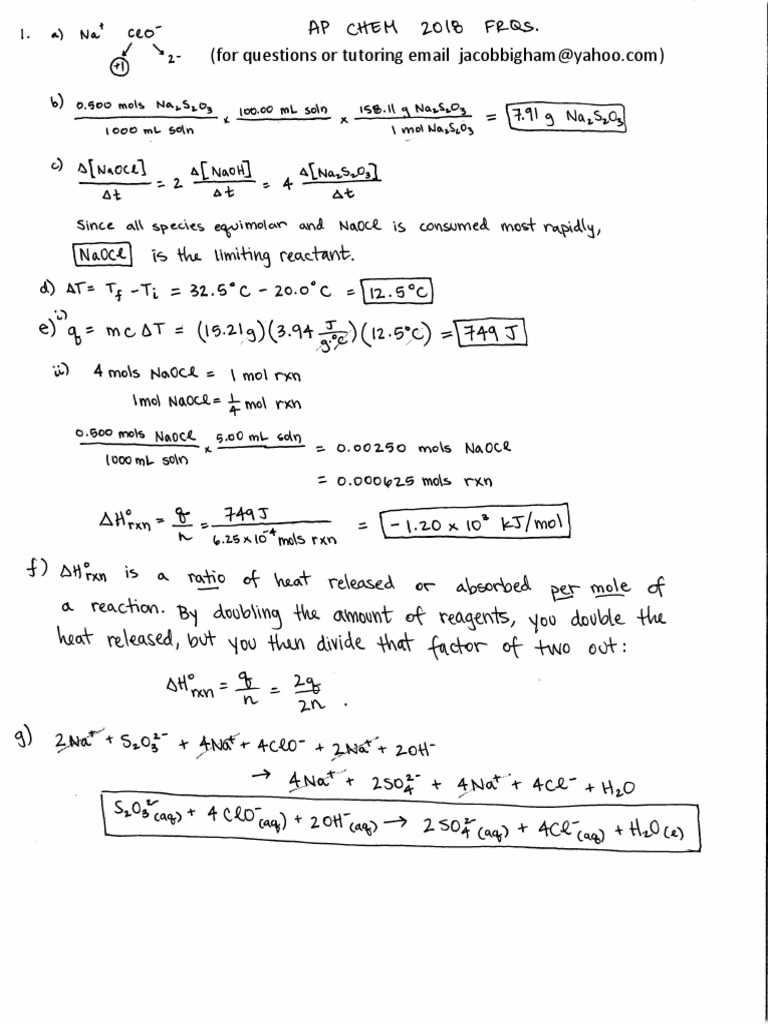 AP CHEM 2018 FRQS.
(for questions or tutoring email jacobbigham@yahoo.com)
1. a) Na⁺ ClO⁻
+1 2-
b) 0.500 mols Na₂S₂O₃ / 1000 mL soln × 100.00 mL soln × 158.11 g Na₂S₂O₃ / 1 mol Na₂S₂O₃ = 7.91 g Na₂S₂O₃
c) Δ[NaOCl] / Δt = 2 Δ[NaOH] / Δt = 4 Δ[Na₂S₂O₃] / Δt
Since all species equimolar and NaOCl is consumed most rapidly,
NaOCl is the limiting reactant.
d) ΔT = Tf - Ti = 32.5°C - 20.0°C = 12.5°C
e) i) q = mcΔT = (15.21g)(3.94 J / g·°C)(12.5°C) = 749 J
ii) 4 mols NaOCl = 1 mol rxn
1 mol NaOCl = 1/4 mol rxn
0.500 mols NaOCl / 1000 mL soln × 5.00 mL soln = 0.00250 mols NaOCl
= 0.000625 mols rxn
ΔH°rxn = q / n = 749 J / 6.25 × 10⁻⁴ mols rxn = -1.20 × 10³ kJ/mol
f) ΔH°rxn is a ratio of heat released or absorbed per mole of
a reaction. By doubling the amount of reagents, you double the
heat released, but you then divide that factor of two out:
ΔH°rxn = q / n = 2q / 2n .
g) 2Na⁺ + S₂O₃²⁻ + 4Na⁺ + 4ClO⁻ + 2Na⁺ + 2OH⁻
→ 4Na⁺ + 2SO₄²⁻ + 4Na⁺ + 4Cl⁻ + H₂O
S₂O₃²⁻(aq) + 4ClO⁻(aq) + 2OH⁻(aq) → 2SO₄²⁻(aq) + 4Cl⁻(aq) + H₂O(l)